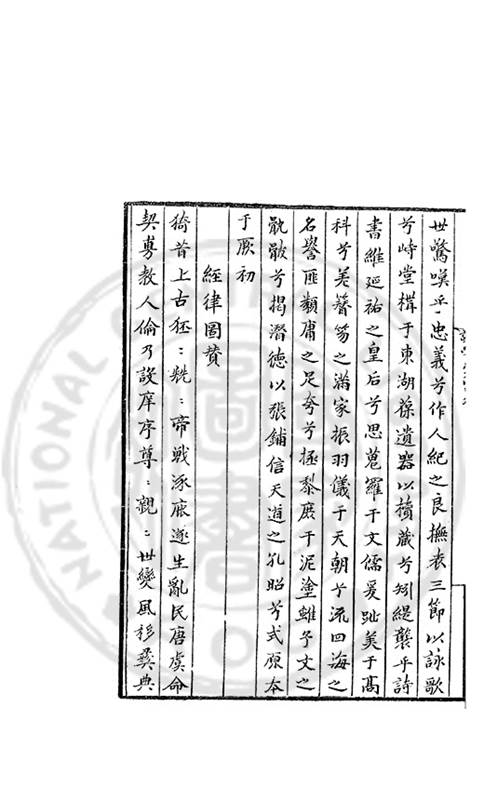 世驚嘆乎忠義兮作人紀之良撫表三節以詠歌
兮峙堂構于東湖葆遺器以櫝藏兮矧緹襲乎詩
書維延祐之皇右兮思蒐羅于文儒爰趾美于高
科兮羌簪笏之滿家振羽儀于天朝兮流四海之
名譽匪顓庸之足夸兮拯黎庶于泥塗雖予文之
骫骳兮揭潛德以張鋪信天道之孔昭兮式原本
于厥初
經律圖贊
猗昔上古狉:兟:帝戰涿鹿遂生亂民唐虞命
契專教人倫乃設庠序尊:親:世變風移彛典
NATIONAL CENTRAL
圖書